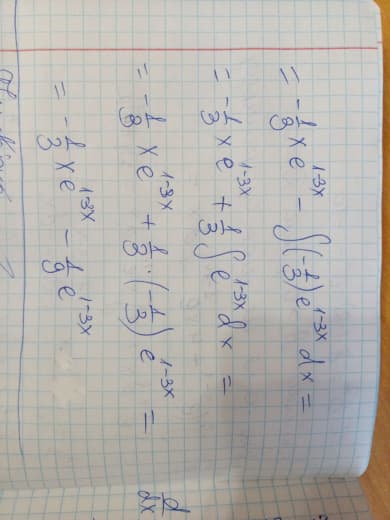 = -1/3 x e^{1-3x} - ∫(-1/3) e^{1-3x} dx =
= -1/3 x e^{1-3x} + 1/3 ∫ e^{1-3x} dx =
= -1/3 x e^{1-3x} + 1/3 · (-1/3) e^{1-3x} =
= -1/3 x e^{1-3x} - 1/9 e^{1-3x}
d/dx